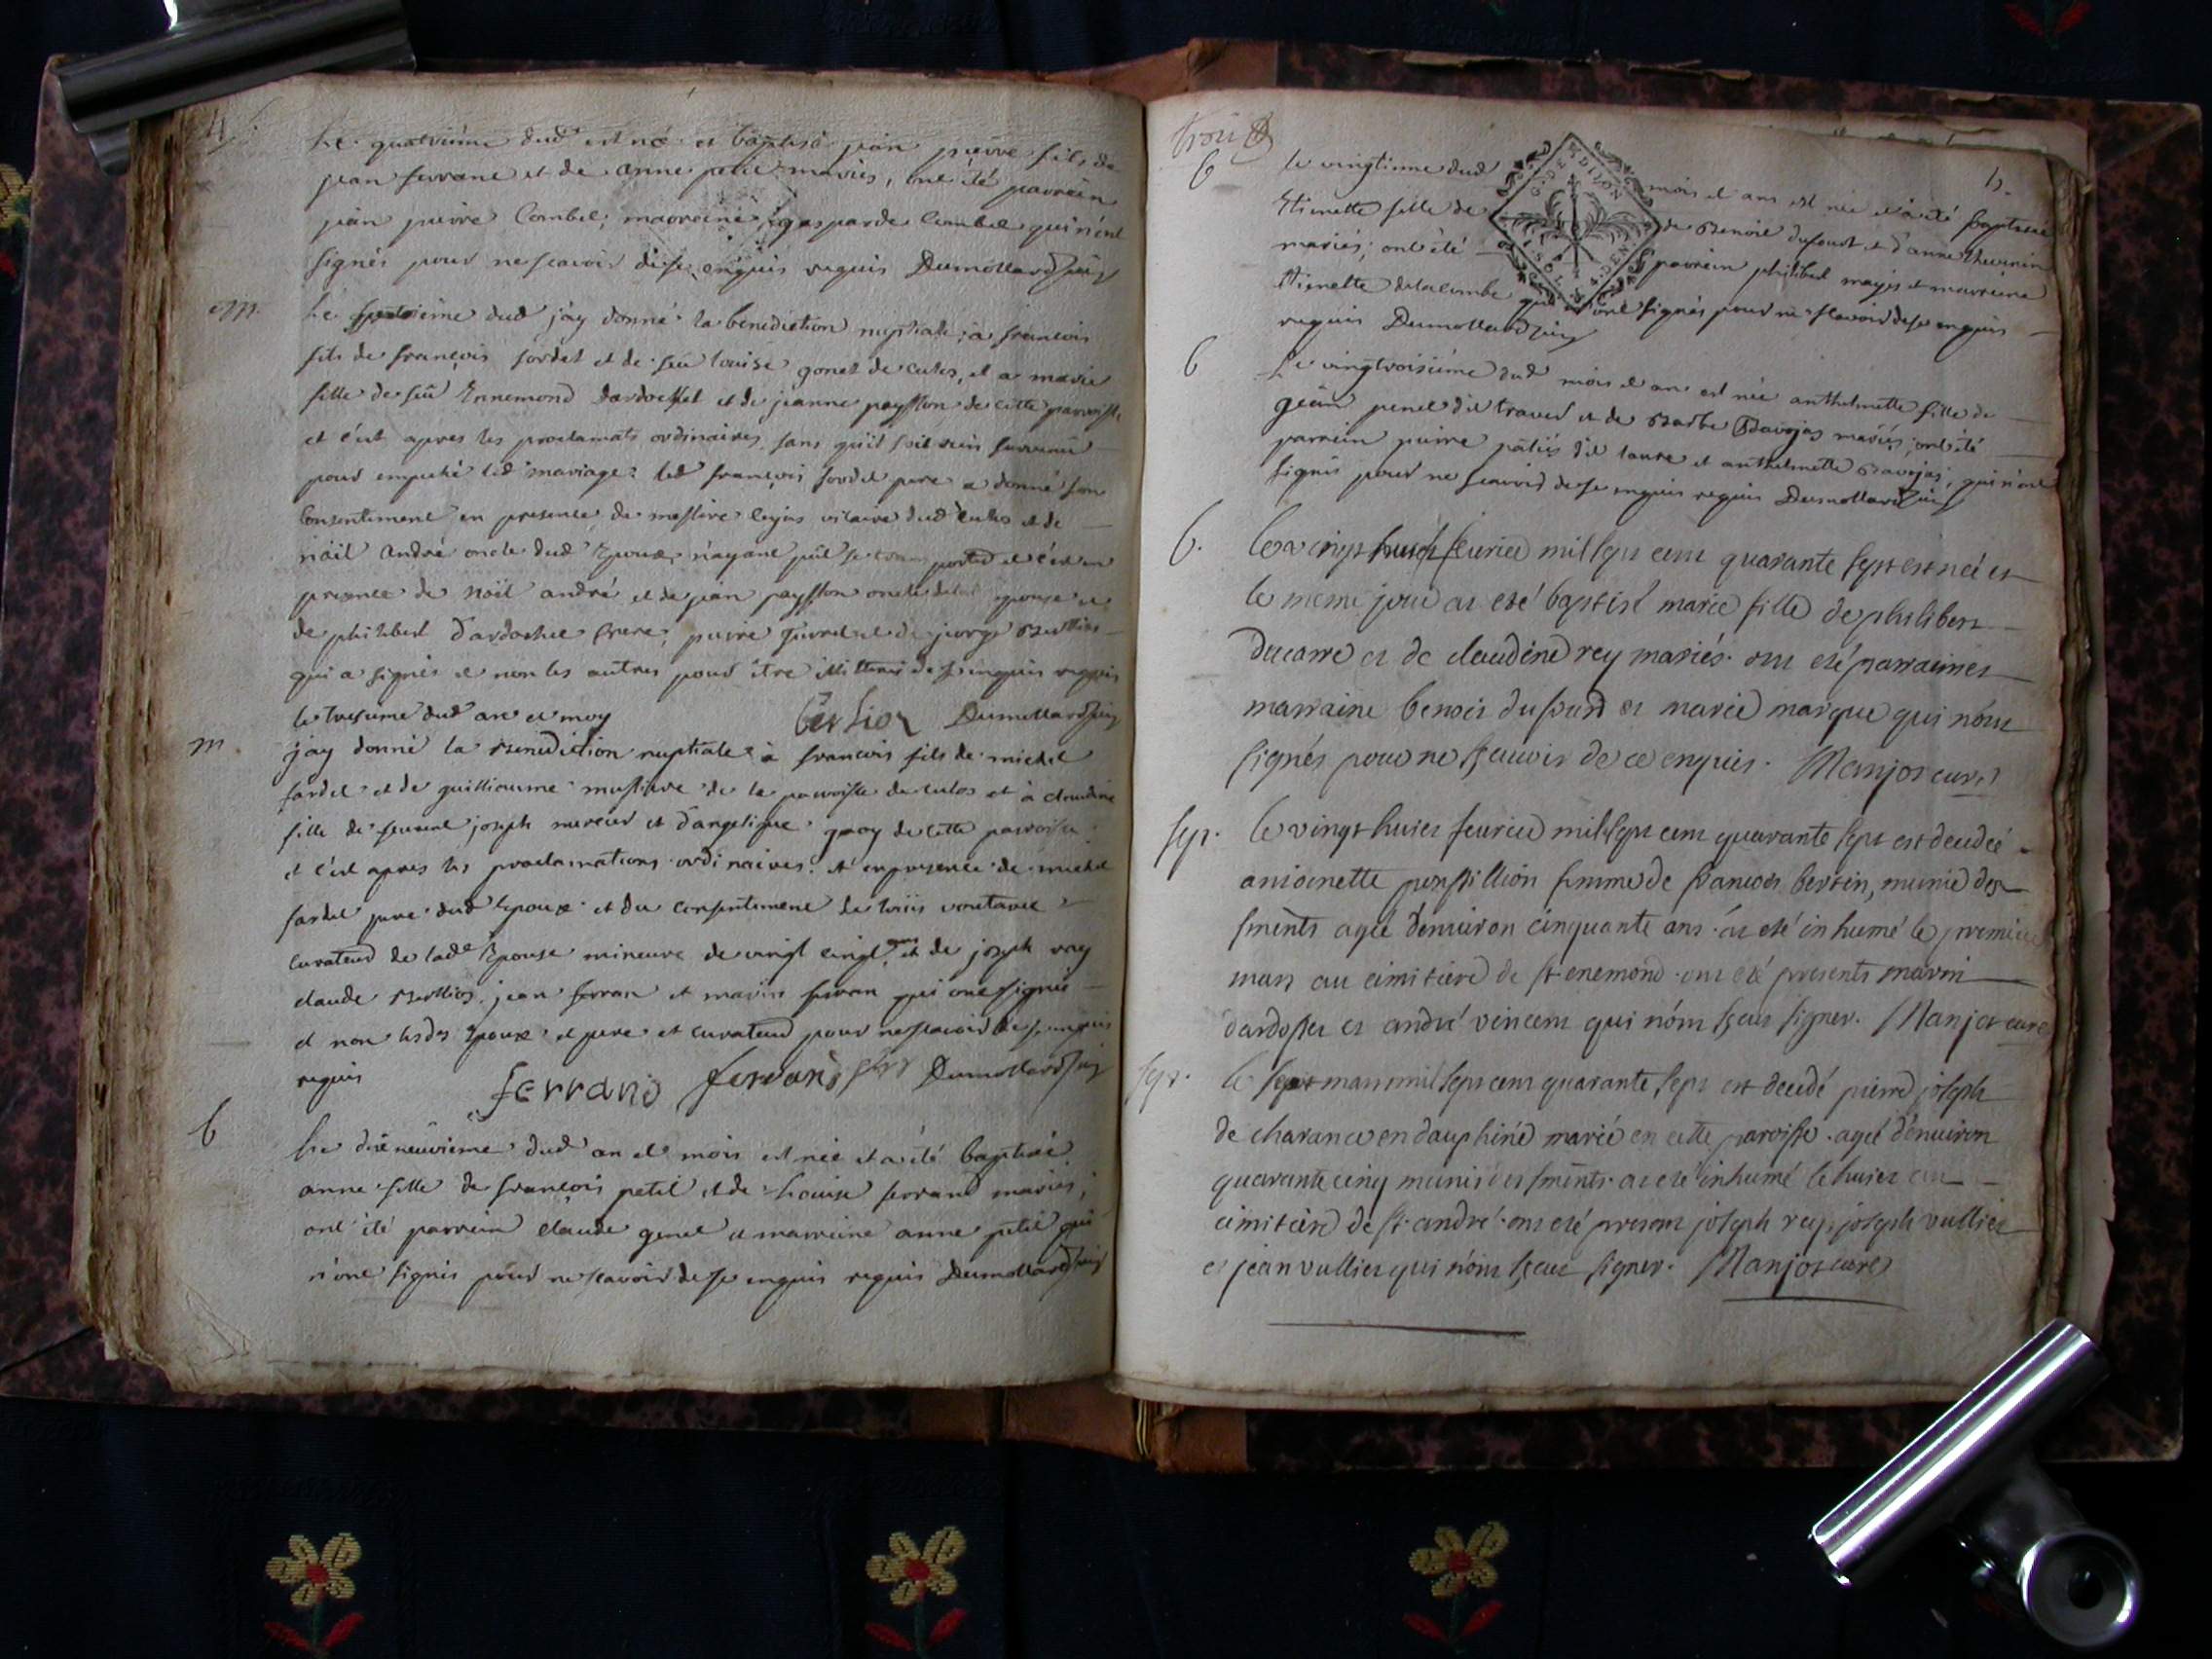 Le quatrieme dud est né et baptisé jean pierre fils de
jean ferrant et de anne petit mariés, ont été parrain
jean pierre Combet, marraine gasparde Combet qui n'ont
signés pour ne scavoir de ce enquis requis Dumollard
m.
Le dud j'ay donné la benediction nuptiale à francois
fils de françois sordet et de feu louise gonet de culos, et a marie
fille de feu Ennemond dardochet et de jeanne paysson de cette parroisse
et c'est apres les proclamats ordinaires sans qu'il soit rien survenu
pour empeché led mariage: led françois sordet pere a donné son
Consentement en presence de messire vicaire dud culos et de
noël André oncle dud Epoux, n'ayant pût se transporter et c'est en
presence de noël andré et de jean paysson oncle de lad epouse et
de philibert dardochet frere, pierre et de jorge Berthier
qui a signés et non les autres pour être illitterés de ce enquis requis
le treisieme dud an et moy Berlioz Dumollard
m
j'ay donné la Benediction nuptiale à francois fils de michel
sardet et de guilliaume mustive de la parroisse de culos et à claudine
fille de joseph mercier et d'angelique de cette parroisse
et c'est apres les proclamations ordinaires: et en presence de michel
sardet pere dud Epoux et du consentement de loüis
curateur de lade Epouse mineure de vingt cinq ans et de joseph rey
claude Berthioz jean ferran et ferran qui ont signés
et non lesds Epoux et pere et curateur pour ne scavoir de ce enquis
requis ferrand ferrand Dumollard
b
Le dixneuvieme dud an et mois est née et a été baptisée
anne fille de françois petit et de Louise ferrand mariés,
ont été parrain claude genet et marraine anne petit qui
n'ont signés pour ne scavoir de ce enquis requis Dumollard
b
le vingtieme dud mois et ans est née et a été baptisée
Etienette fille de de Benoit dufourt et d'anne thevenin
mariés; ont été parrein philibert et marreine
Etienette delacombe qui n'ont signés pour ne scavoir de ce enquis
requis Dumollard
b
Le vingtroisieme dud mois et an est née anthelmette fille de
jean penel dit traver et de Barbe Bavojas mariés; ont été
parrein pierre dit laure et anthelmette Bavojas; qui n'ont
signés pour ne scavoir de ce enquis requis Dumollard
b.
le vingt huit feurier mil sept cent quarante sept est neé et
le meme jour at eté baptisé marie fille de philibert
ducarre et de claudine rey mariés. ont eté parrainet
marraine benoit dufourd et marie marque qui n'ont
signés pour ne scauoir de ce enquis. Manjot curé
sep.
le vingt huict feurier mil sept cent quarante sept est decedée
antoinette ponsillion femme de francois bertin, munie des
sments agée d'enuiron cinquante ans. at eté inhumé le premier
mars au cimitiere de st enemond. ont eté presents marin
dardoset et andré vincent qui n'ont sceu signer. Manjot curé
sep.
le sept mars mil sept cent quarante sept est decedé pierre joseph
de charance en dauphiné marié en cette paroisse. agé d'enuiron
quarante cinq munis des sments. at eté inhumé le huict au
cimitiere de st. andré. ont eté present joseph rey, joseph vullier
et jean vullier qui n'ont sceu signer. Manjot curé